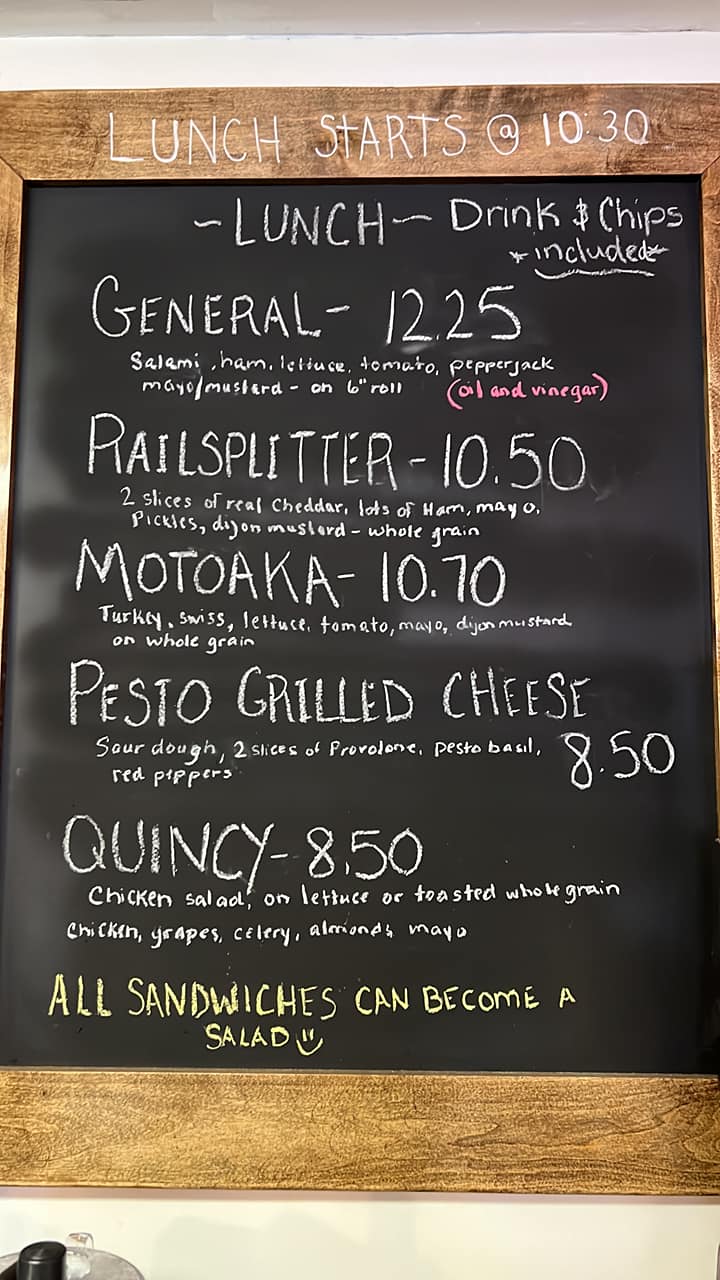 LUNCH STARTS @ 10:30
~LUNCH~ Drink & Chips
*included*
GENERAL- 12.25
Salami, ham, lettuce, tomato, pepperjack
mayo/mustard - on 6" roll (oil and vinegar)
RAILSPLITTER-10.50
2 slices of real Cheddar, lots of Ham, mayo,
Pickles, dijon mustard - whole grain
MOTOAKA- 10.70
Turkey, swiss, lettuce, tomato, mayo, dijon mustard
on whole grain
PESTO GRILLED CHEESE
Sour dough, 2 slices of Provolone, pesto basil, 8.50
red peppers
QUINCY- 8.50
Chicken salad, on lettuce or toasted whole grain
Chicken, grapes, celery, almonds, mayo
ALL SANDWICHES CAN BECOME A
SALAD